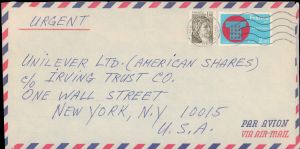 URGENT
UNILEVER LTD. (AMERICAN SHARES)
c/o IRVING TRUST CO.
ONE WALL STREET
NEW YORK, N.Y 10015
U.S.A.
PAR AVION
VIA AIR-MAIL